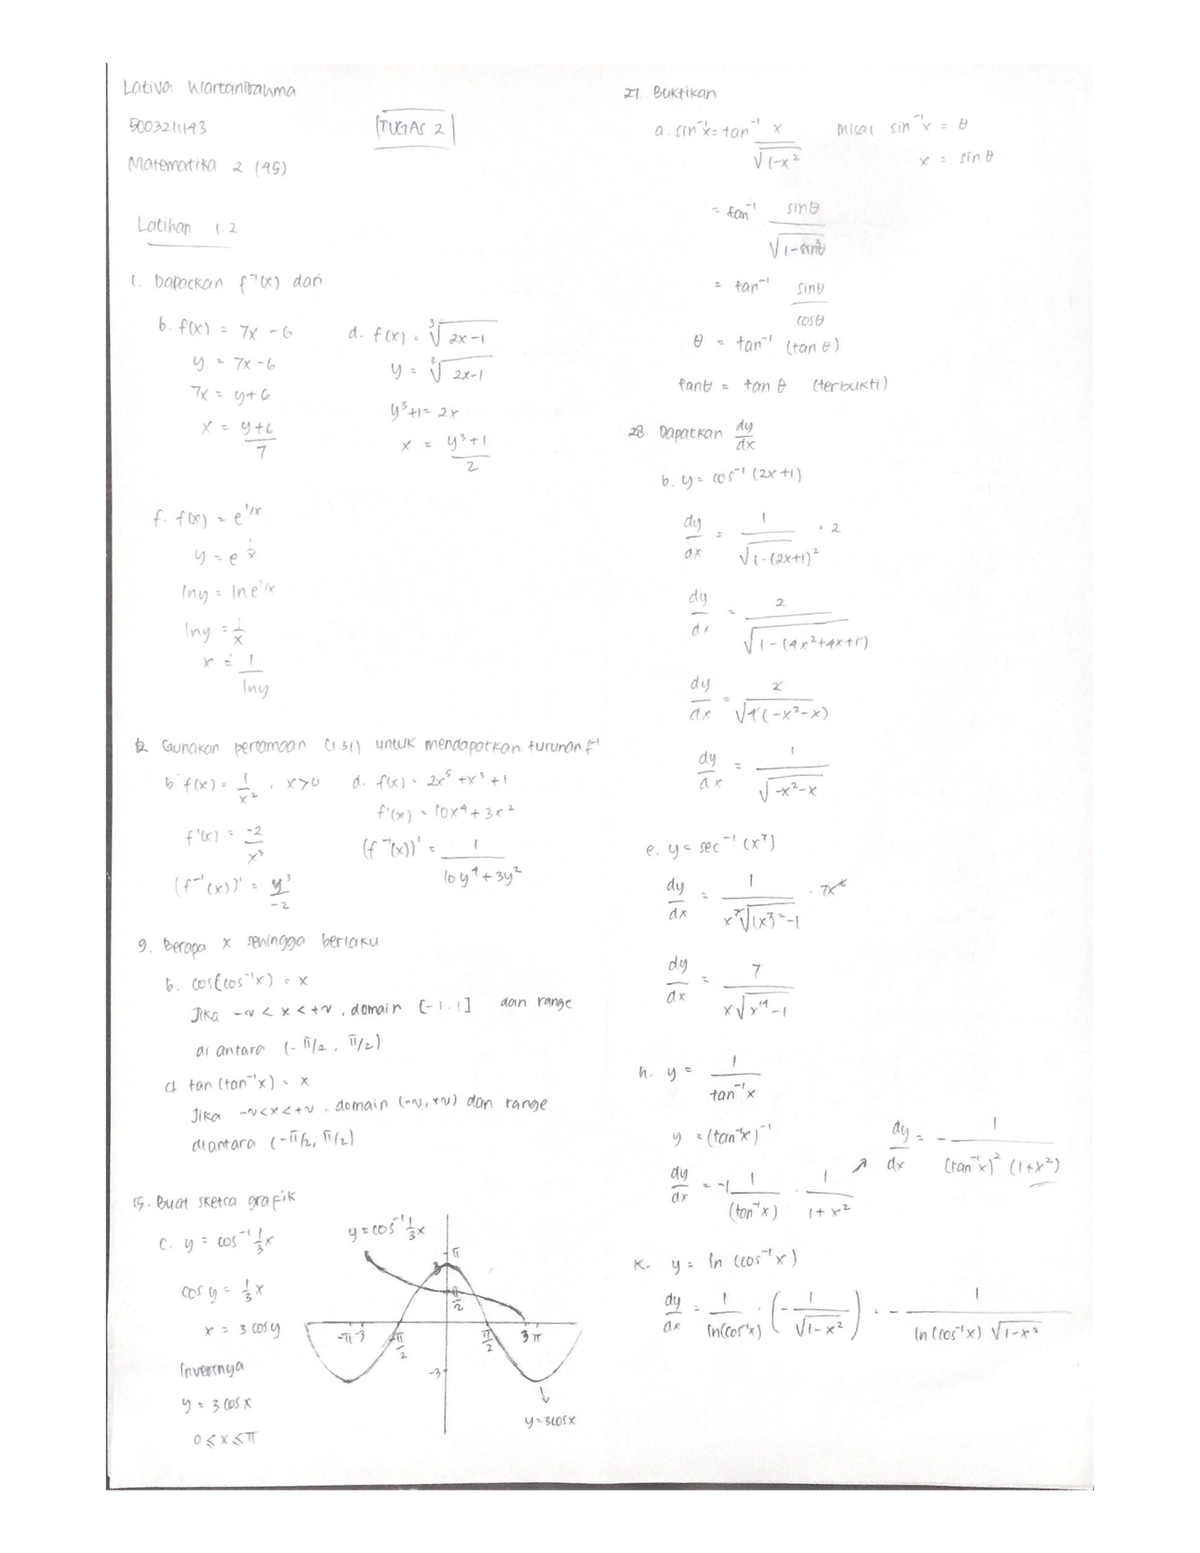 Lativa Wartanirahma
5003211143
TUGAS 2
Matematika 2 (45)
Latihan 1.2
1. Dapatkan f⁻¹(x) dari
b. f(x) = 7x - 6
y = 7x - 6
7x = y + 6
x = (y + 6)/7
d. f(x) = ∛(2x - 1)
y = ∛(2x - 1)
y³ + 1 = 2x
x = (y³ + 1)/2
f. f(x) = e^(1/x)
y = e^(1/x)
ln y = ln e^(1/x)
ln y = 1/x
x = 1/ln y
2. Gunakan persamaan (1.31) untuk mendapatkan turunan f⁻¹
b. f(x) = 1/x², x > 0
f'(x) = -2/x³
(f⁻¹(x))' = y³/-2
d. f(x) = 2x⁵ + x³ + 1
f'(x) = 10x⁴ + 3x²
(f⁻¹(x))' = 1/(10y⁴ + 3y²)
9. Berapa x sehingga berlaku
b. cos(cos⁻¹x) = x
Jika -~ < x < +~, domain [-1, 1] dan range
di antara (-π/2, π/2)
d. tan(tan⁻¹x) = x
Jika -~ < x < +~, domain (-~, +~) dan range
diantara (-π/2, π/2)
15. Buat sketsa grafik
c. y = cos⁻¹ 1/3 x
cos y = 1/3 x
x = 3 cos y
Inversnya
y = 3 cos x
0 ≤ x ≤ π
y = cos⁻¹ 1/3 x
π
3
π/2
-π -3 -π/2 π/2 3 π
-3
y = 3cos x
27. Buktikan
a. sin⁻¹x = tan⁻¹ x/√(1-x²) misal sin⁻¹x = θ
x = sin θ
= tan⁻¹ sinθ/√(1-sin²θ)
= tan⁻¹ sinθ/cosθ
θ = tan⁻¹ (tan θ)
tanθ = tan θ (terbukti)
28. Dapatkan dy/dx
b. y = cos⁻¹ (2x+1)
dy/dx = 1/√(1-(2x+1)²) · 2
dy/dx = 2/√(1-(4x²+4x+1))
dy/dx = 2/√(4(-x²-x))
dy/dx = 1/√(-x²-x)
e. y = sec⁻¹ (x⁷)
dy/dx = 1/(x⁷√((x⁷)²-1)) · 7x⁶
dy/dx = 7/(x√(x¹⁴-1))
h. y = 1/tan⁻¹x
y = (tan⁻¹x)⁻¹
dy/dx = -1 1/(tan⁻¹x) · 1/(1+x²)
dy/dx = - 1/((tan⁻¹x)² (1+x²))
k. y = ln (cos⁻¹x)
dy/dx = 1/ln(cos⁻¹x) · (- 1/√(1-x²)) = - 1/(ln(cos⁻¹x) √(1-x²))